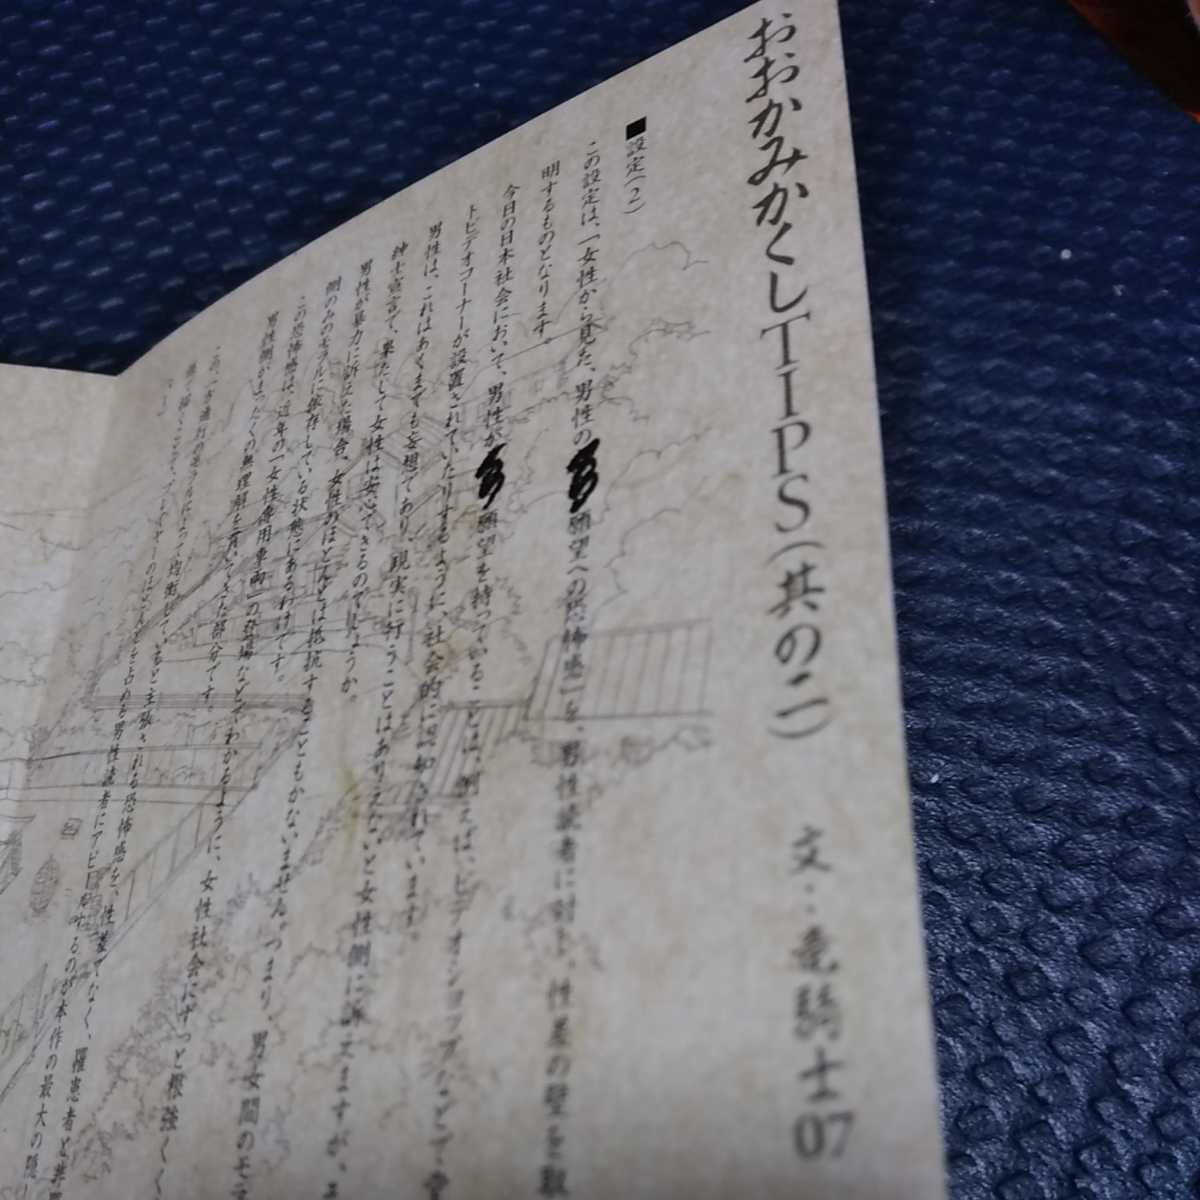 おおかみかくしTIPS(其の二) 文:竜騎士07
■設定(2)
この設定は、「女性から見た、男性の願望への恐怖感」を、男性読者に対し、性差の壁を取
明するものとなります
今日の日本社会において、男性が願望を持っていることは、例えば、ビデオショップなどで
トビデオコーナーが設置されていたりするように、社会的に認知されています。
男性は、これはあくまでも妄想であり、現実に行うことはありえないと女性側に訴えますが、
紳士宣言で、果たして女性は安心できるのでしょうか。
男性が暴力に訴えた場合、女性のほとんどは抵抗することもかないません。つまり、男女間のモラ
側のみのモラルに依存している状態にあるわけです。
この恐怖感は、近年の「女性専用車両」の登場などでわかるように、女性社会にずっと根強く
男性側がまったくの無理解を貫いてきた部分です。
この、一方通行のモラルによって均衡している、と主張される恐怖感を、性差でなく、罹患者と非罹
のほとんどを占める男性読者にアピールするのが本作の最大の隠し